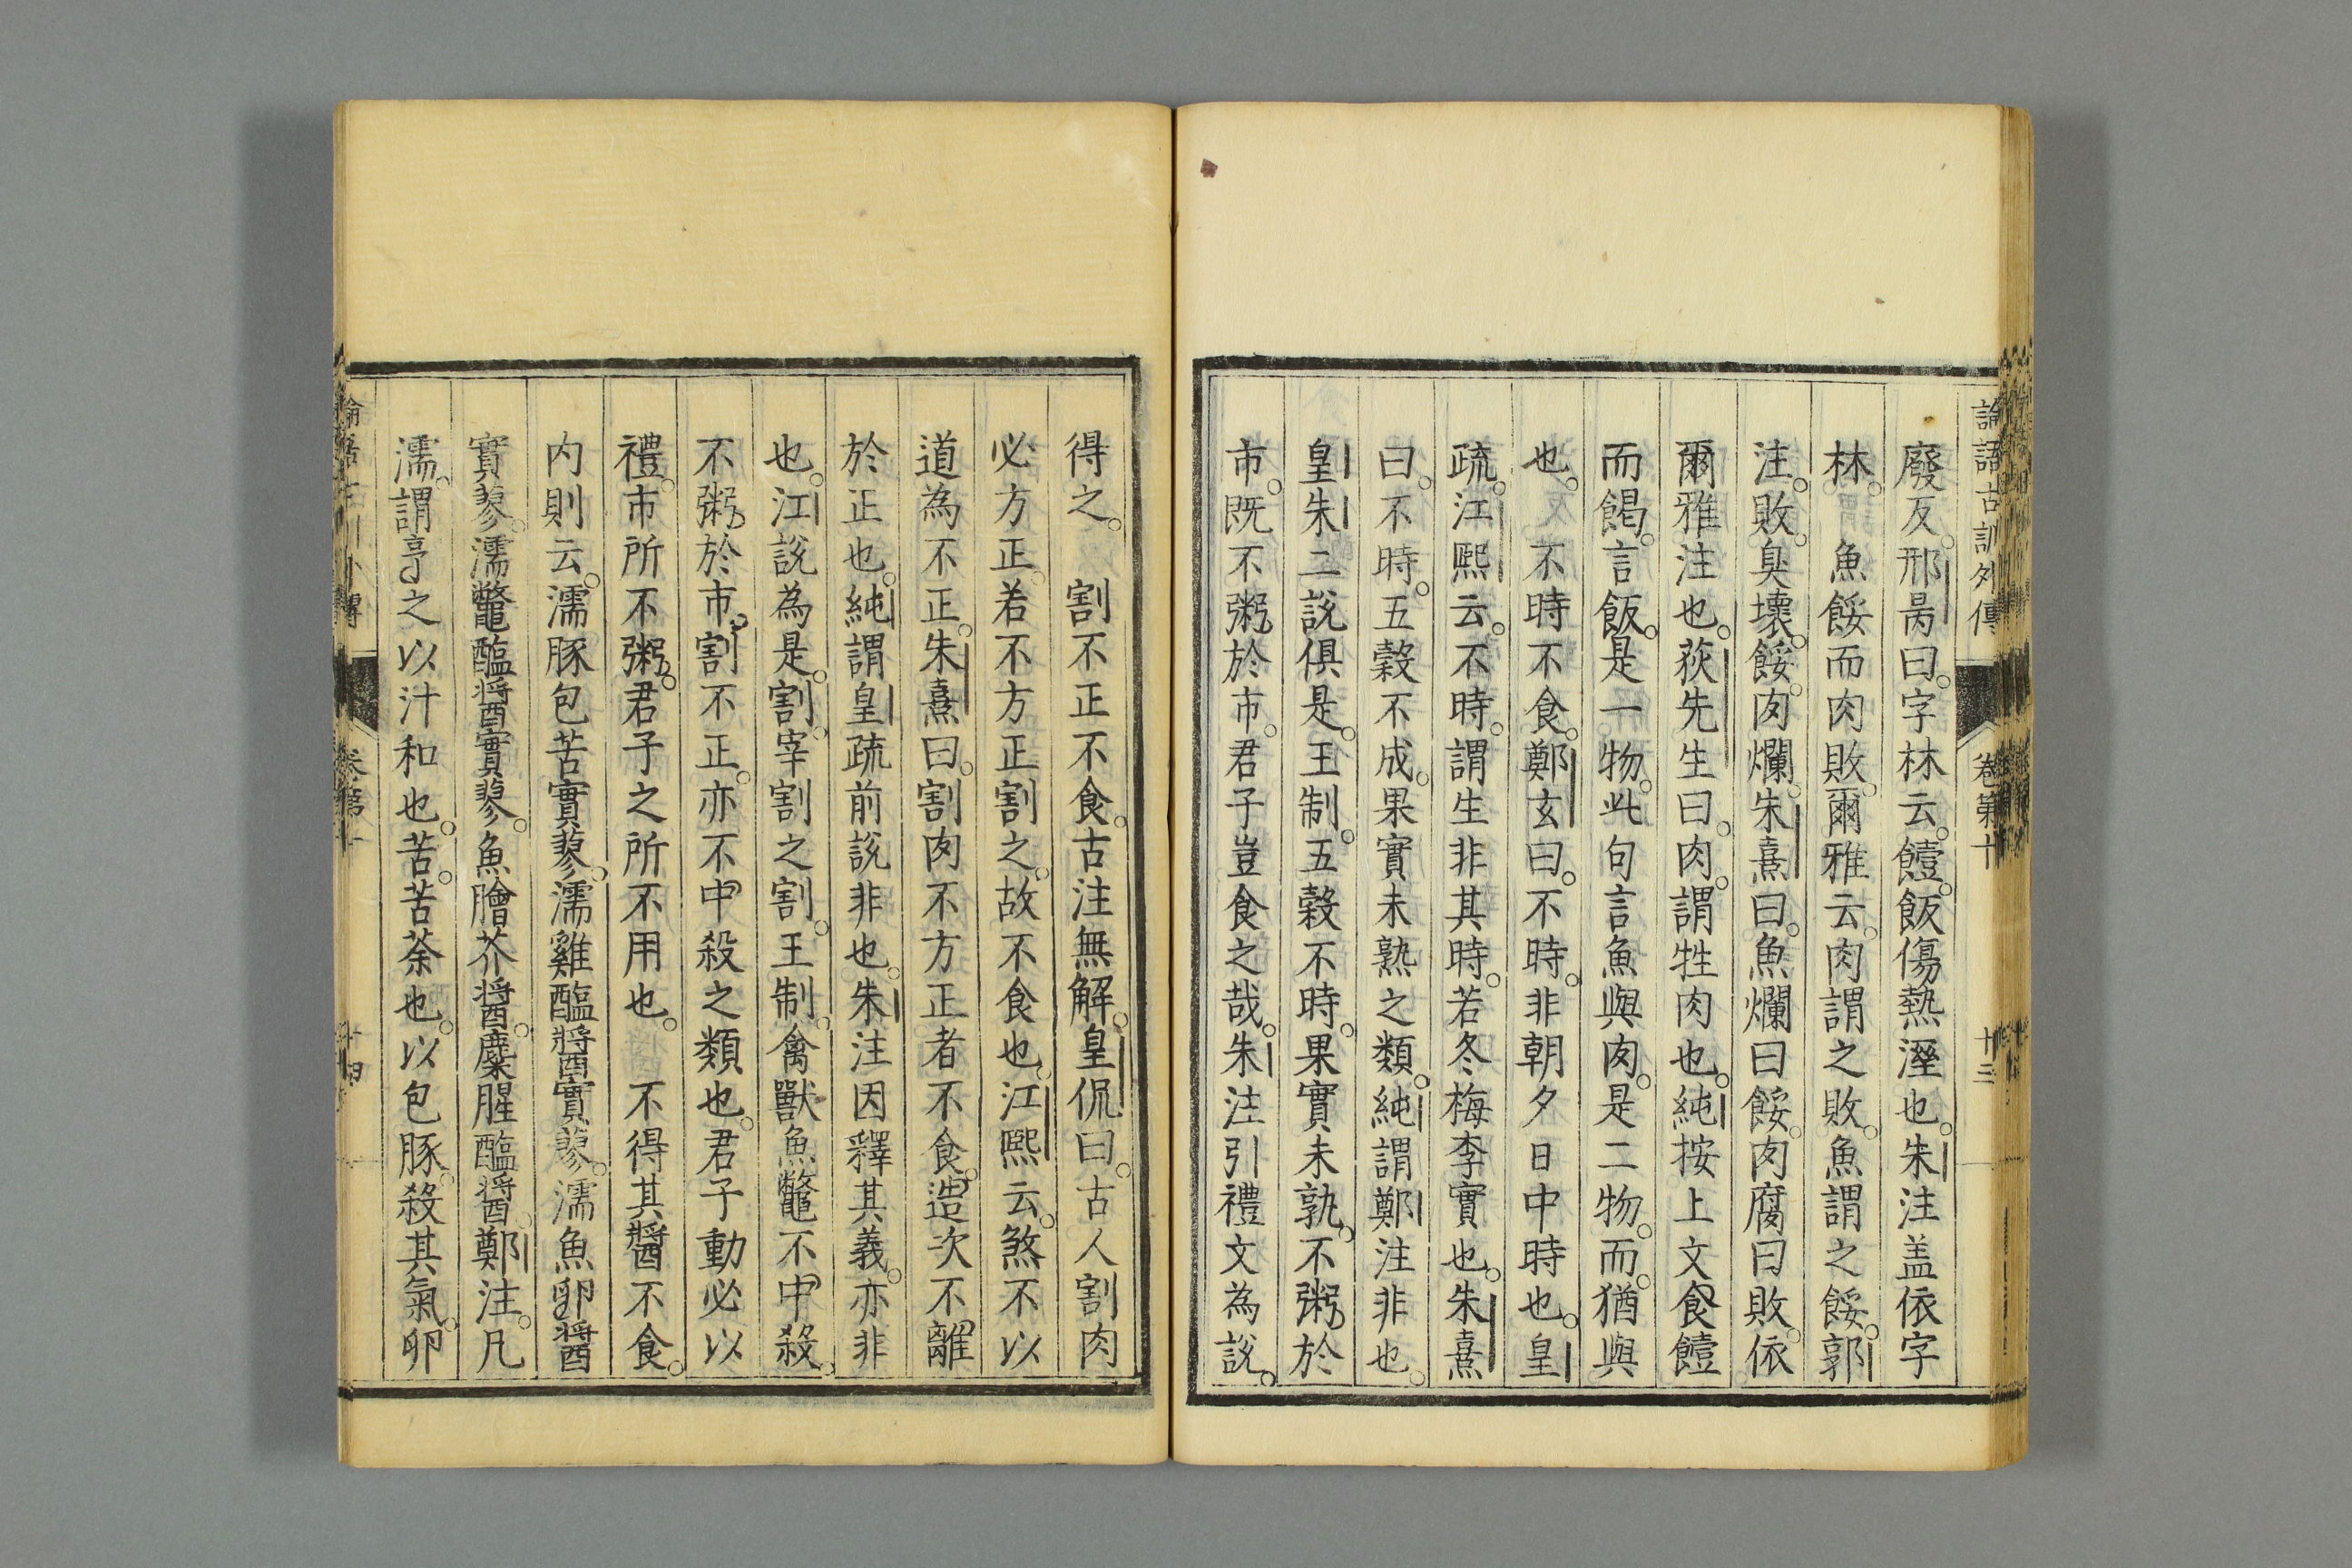 論語古訓外傳 卷第十 十三
廢反。邢昺曰。字林云。饐。飯傷熱溼也。朱注盖依字
林。　魚餒而肉敗。爾雅云。肉謂之敗。魚謂之餒。郭
注。敗。臭壞。餒。肉爛。朱熹曰。魚爛曰餒。肉腐曰敗。依
爾雅注也。荻先生曰。肉。謂牲肉也。純按上文食饐
而餲。言飯。是一物。此句言魚與肉。是二物。而。猶與
也。　不時不食。鄭玄曰。不時。非朝夕日中時也。皇
疏。江熙云。不時。謂生非其時。若冬梅李實也。朱熹
曰。不時。五穀不成。果實未熟之類。純謂鄭注非也。
皇朱二說俱是。王制。五穀不時。果實未孰。不粥於
市。既不粥於市。君子豈食之哉。朱注引禮文為說。
得之。　割不正不食。古注無解。皇侃曰。古人割肉
必方正。若不方正割之。故不食也。江熙云。煞不以
道為不正。朱熹曰。割肉不方正者不食。造次不離
於正也。純謂皇疏前說非也。朱注因釋其義。亦非
也。江說為是。割。宰割之割。王制。禽獸魚鼈不中殺。
不粥於市。割不正。亦不中殺之類也。君子動必以
禮。市所不粥。君子之所不用也。　不得其醬不食。
内則云。濡豚包苦實蓼。濡雞醢醬實蓼。濡魚卵醬
實蓼。濡鼈醢醬實蓼。魚膾芥醬。麋腥醢醬。鄭注。凡
濡。謂亨之以汁和也。苦。苦荼也。以包豚。殺其氣。卵